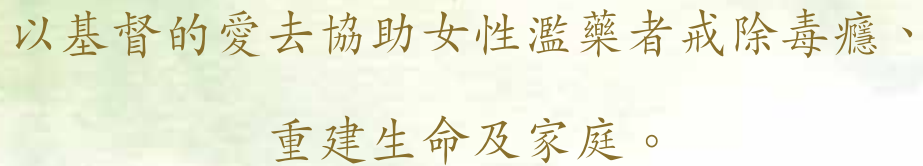 以基督的愛去協助女性濫藥者戒除毒癮、
重建生命及家庭。